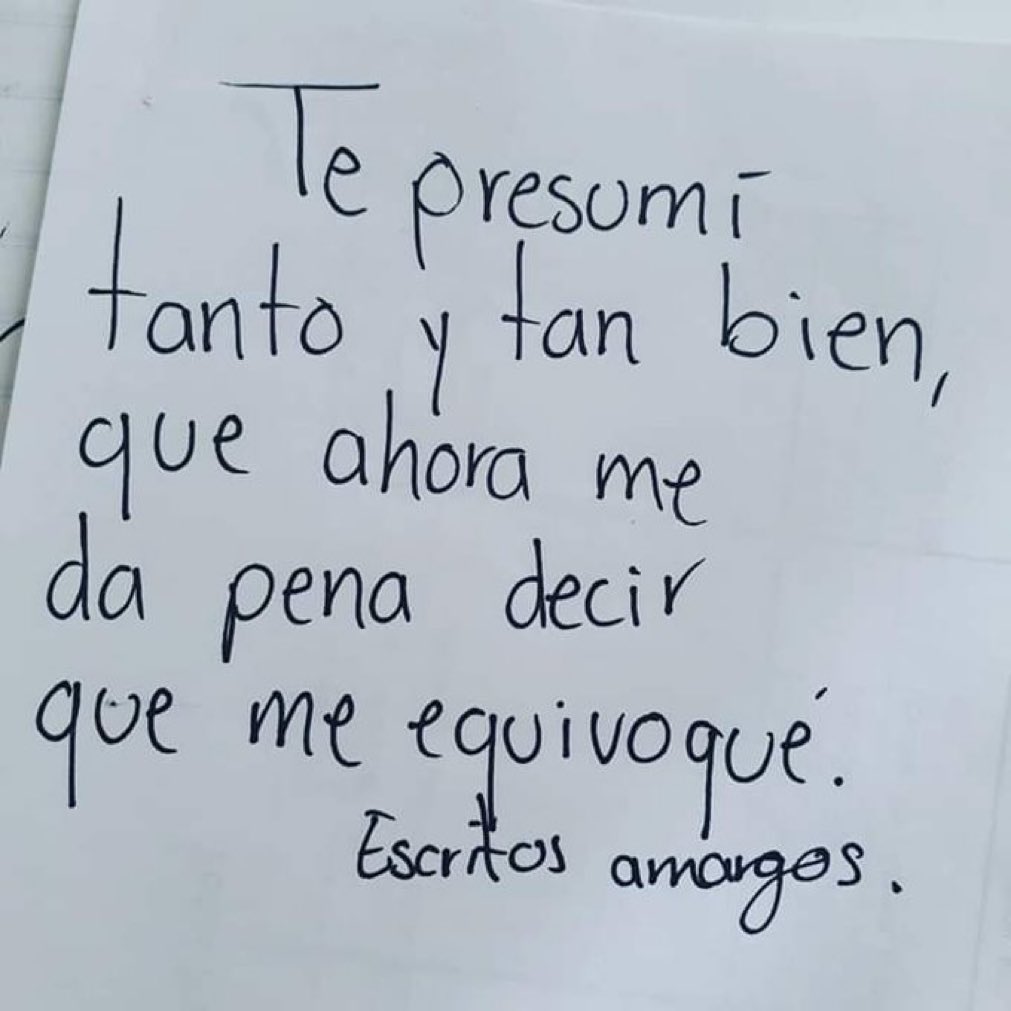 Te presumí
tanto y tan bien,
que ahora me
da pena decir
que me equivoqué.
Escritos amargos.